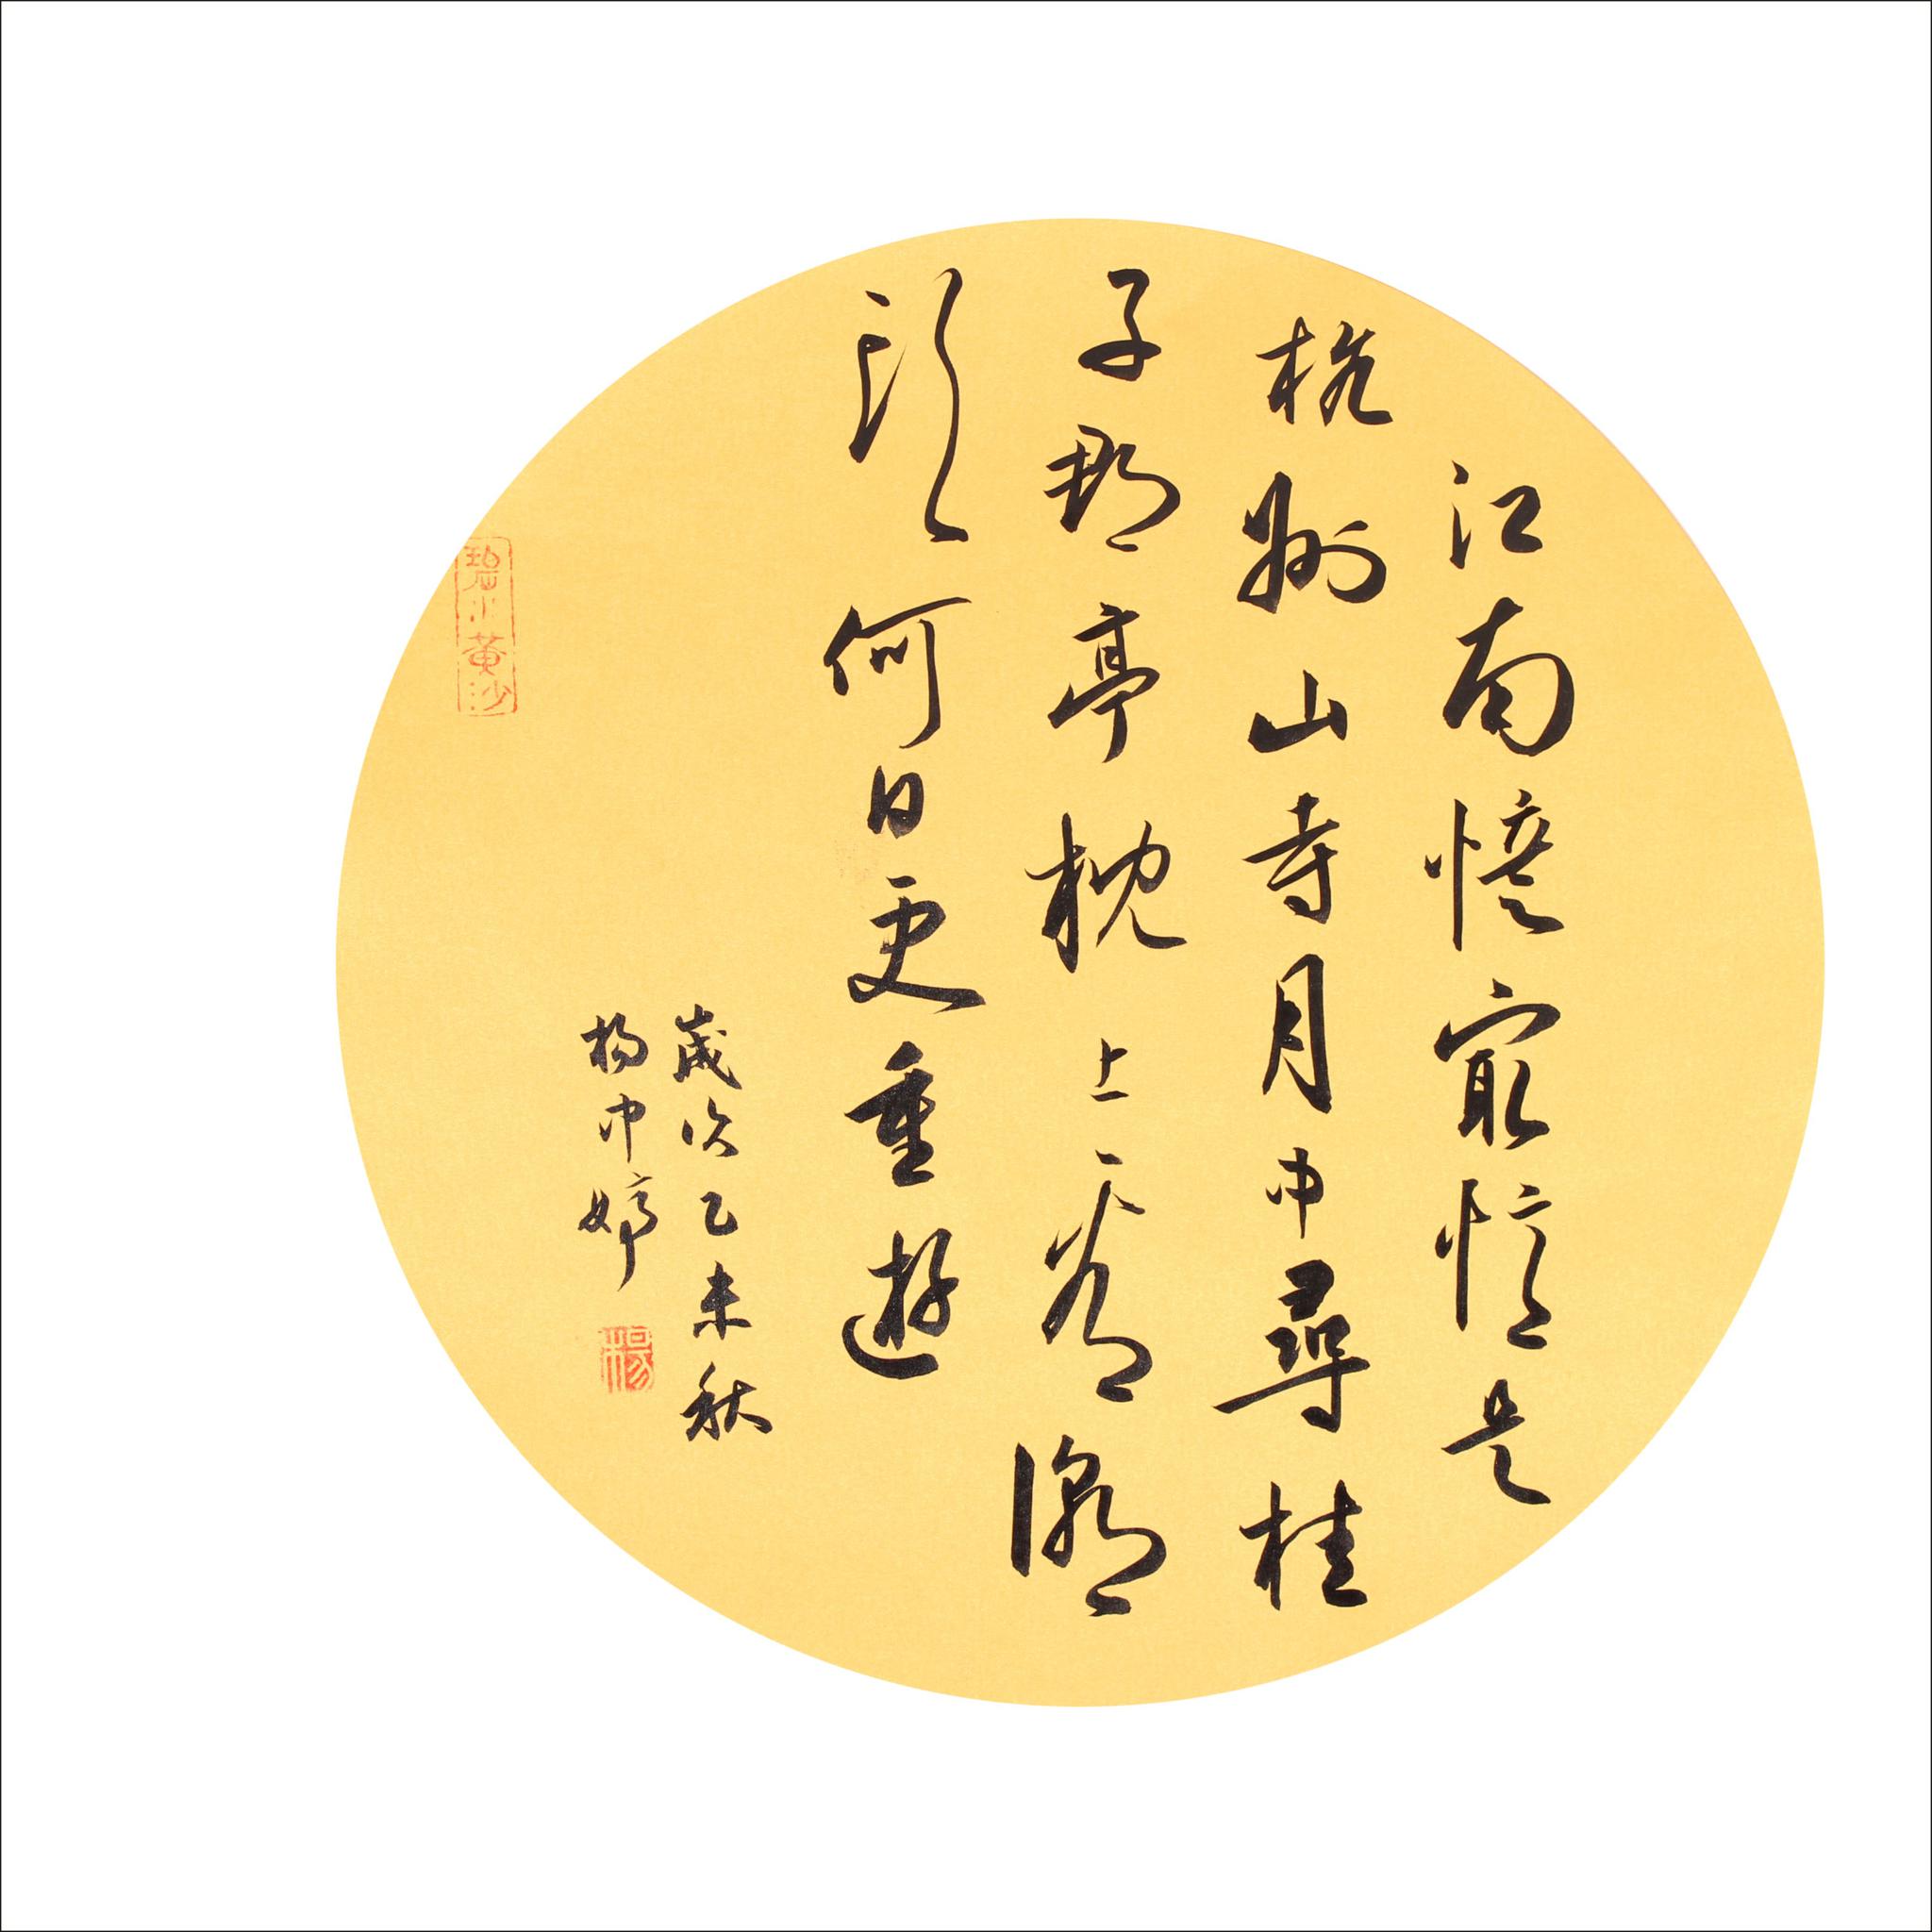 江南憶最憶是
杭州山寺月中尋桂
子郡亭枕上看潮
頭何日更重遊
歲次乙未秋
楊中婷
楊
碧水黃沙